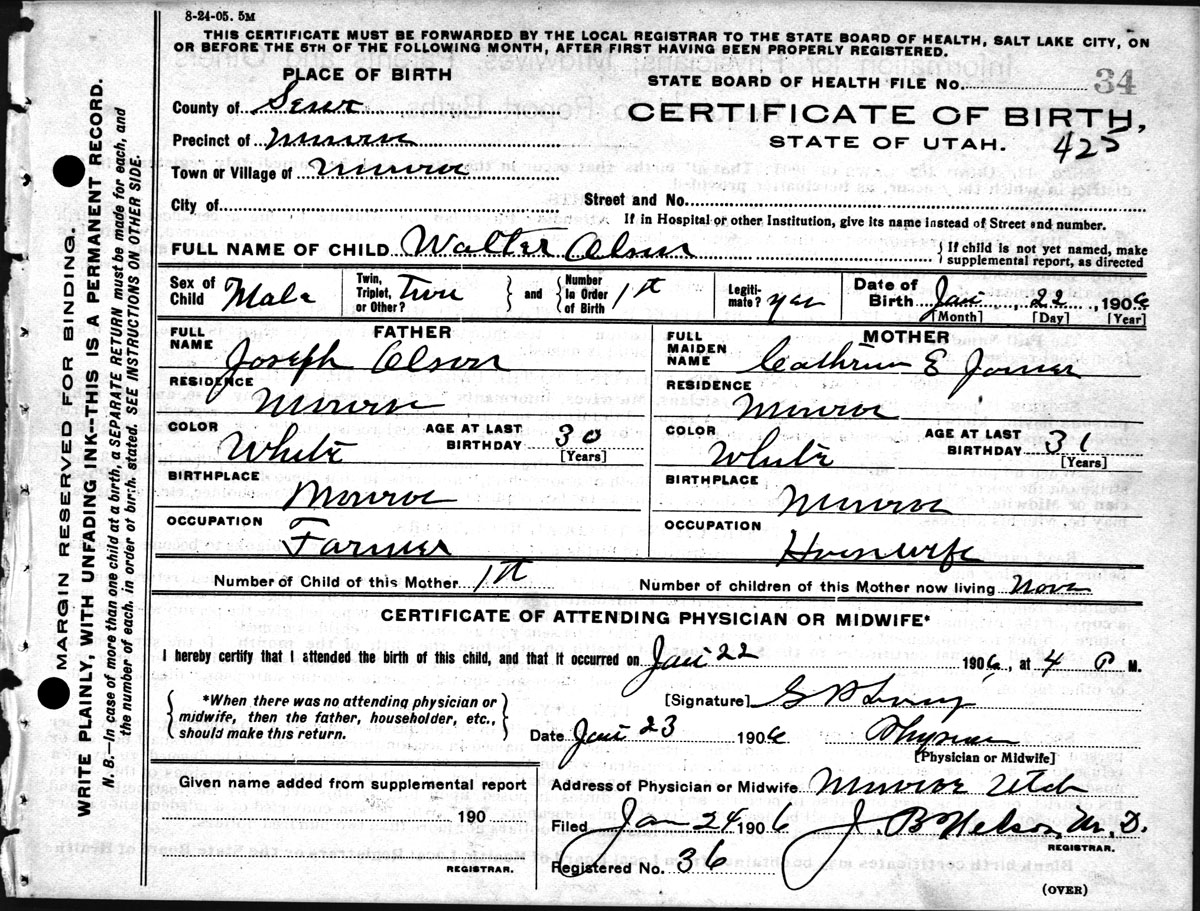 8-24-05. 5M
THIS CERTIFICATE MUST BE FORWARDED BY THE LOCAL REGISTRAR TO THE STATE BOARD OF HEALTH, SALT LAKE CITY, ON
OR BEFORE THE 5TH OF THE FOLLOWING MONTH, AFTER FIRST HAVING BEEN PROPERLY REGISTERED.
PLACE OF BIRTH
STATE BOARD OF HEALTH FILE No. 34
County of Sevier
CERTIFICATE OF BIRTH,
Precinct of Monroe
STATE OF UTAH. 425
Town or Village of Monroe
City of Street and No.
If in Hospital or other Institution, give its name instead of Street and number.
FULL NAME OF CHILD Walter Olson } If child is not yet named, make supplemental report, as directed
Sex of Child Male Twin, Triplet, or Other? Twin } and { Number In Order of Birth 1st Legitimate? yes Date of Birth Jan 22, 1906
[Month] [Day] [Year]
FATHER MOTHER
FULL NAME Joseph Olson FULL MAIDEN NAME Cathrine E
RESIDENCE Monroe RESIDENCE Monroe
COLOR White AGE AT LAST BIRTHDAY 30 [Years] COLOR White AGE AT LAST BIRTHDAY 31 [Years]
BIRTHPLACE Monroe BIRTHPLACE Monroe
OCCUPATION Farmer OCCUPATION Housewife
Number of Child of this Mother 1st Number of children of this Mother now living None
CERTIFICATE OF ATTENDING PHYSICIAN OR MIDWIFE*
I hereby certify that I attended the birth of this child, and that it occurred on Jan 22 1906, at 4 P M.
{ *When there was no attending physician or midwife, then the father, householder, etc., should make this return. }
[Signature]
Date Jan 23 1906 Physician
[Physician or Midwife]
Given name added from supplemental report
Address of Physician or Midwife Monroe Utah
190
Filed Jan 24 1906 J. B Nelson, M. D.
REGISTRAR.
REGISTRAR.
Registered No. 36
(OVER)
MARGIN RESERVED FOR BINDING.
WRITE PLAINLY, WITH UNFADING INK--THIS IS A PERMANENT RECORD.
N. B.—In case of more than one child at a birth, a SEPARATE RETURN must be made for each, and
the number of each, in order of birth, stated. SEE INSTRUCTIONS ON OTHER SIDE.